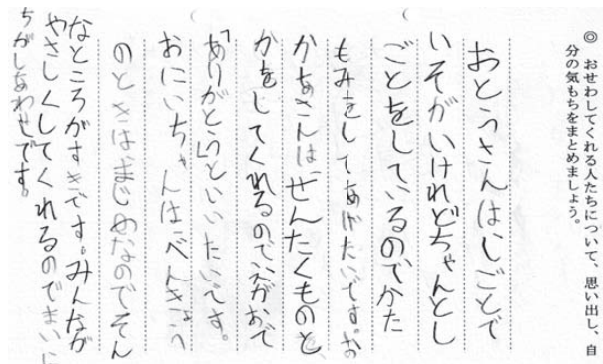 ◎ おせわしてくれる人たちについて、思い出し、自
分の気もちをまとめましょう。
おとうさんはしごとで
いそがいけれどちゃんとし
ごとをしているのでかた
もみをしてあげたいです。お
かあさんは、ぜんたくものと、
かをしてくれるので、えがおで
「ありがとう」といいたいです。
おにいちゃんは、べんきょう
のときは、まじめなのでそん
なところがすきです。みんなが
やさしくしてくれるのでまいに
ちがしあわせです。